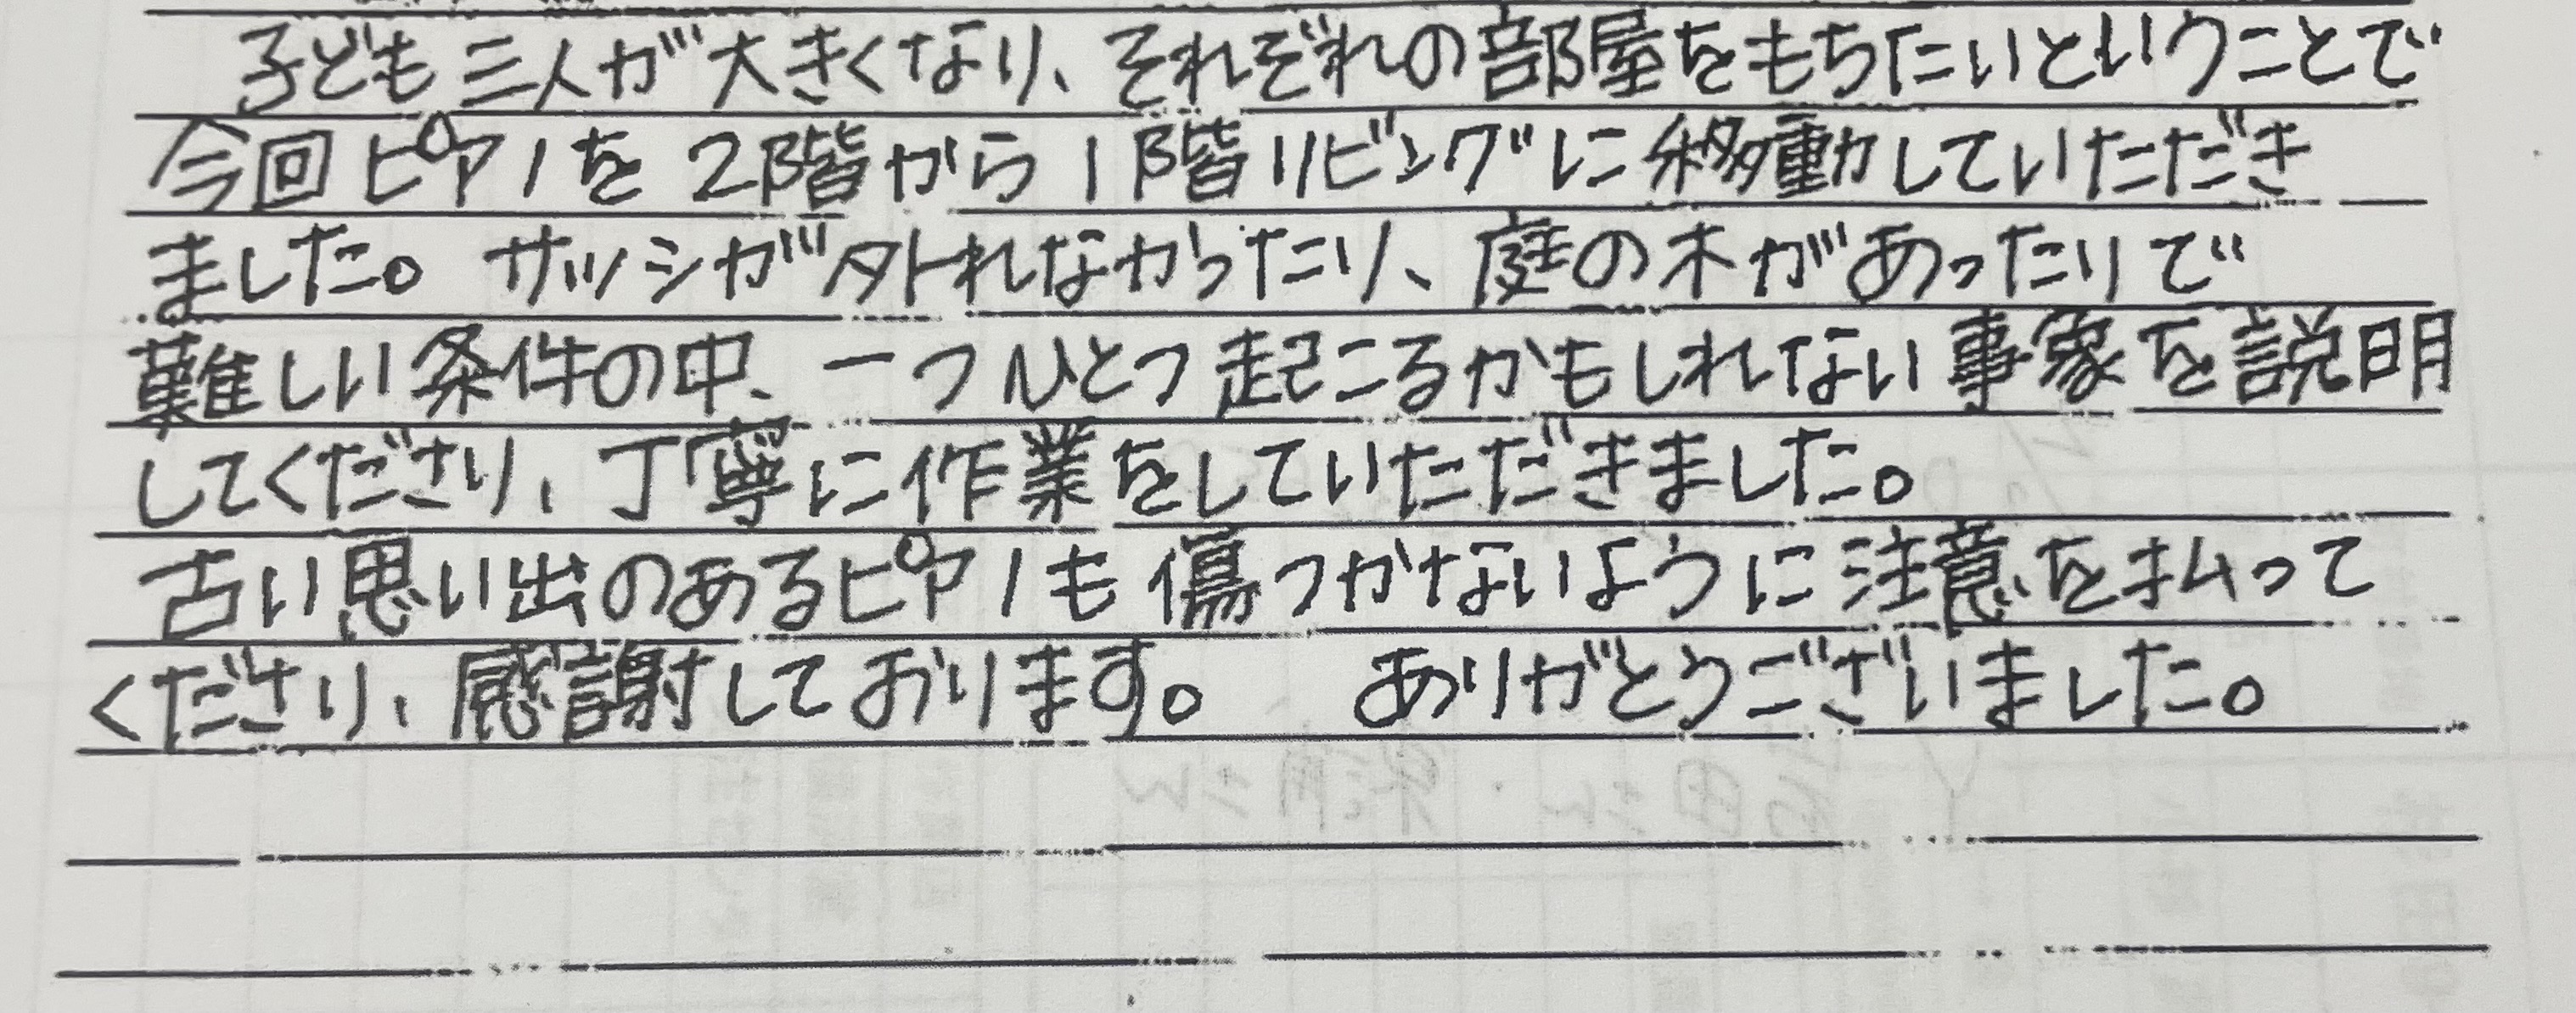 子ども三人が大きくなり、それぞれの部屋をもちたいということで
今回ピアノを2階から1階リビングに移動していただき
ました。サッシが外れなかったり、庭の木があったりで
難しい条件の中、一つひとつ起こるかもしれない事象を説明
してくださり、丁寧に作業をしていただきました。
古い思い出のあるピアノも傷つかないように注意を払って
くださり、感謝しております。 ありがとうございました。